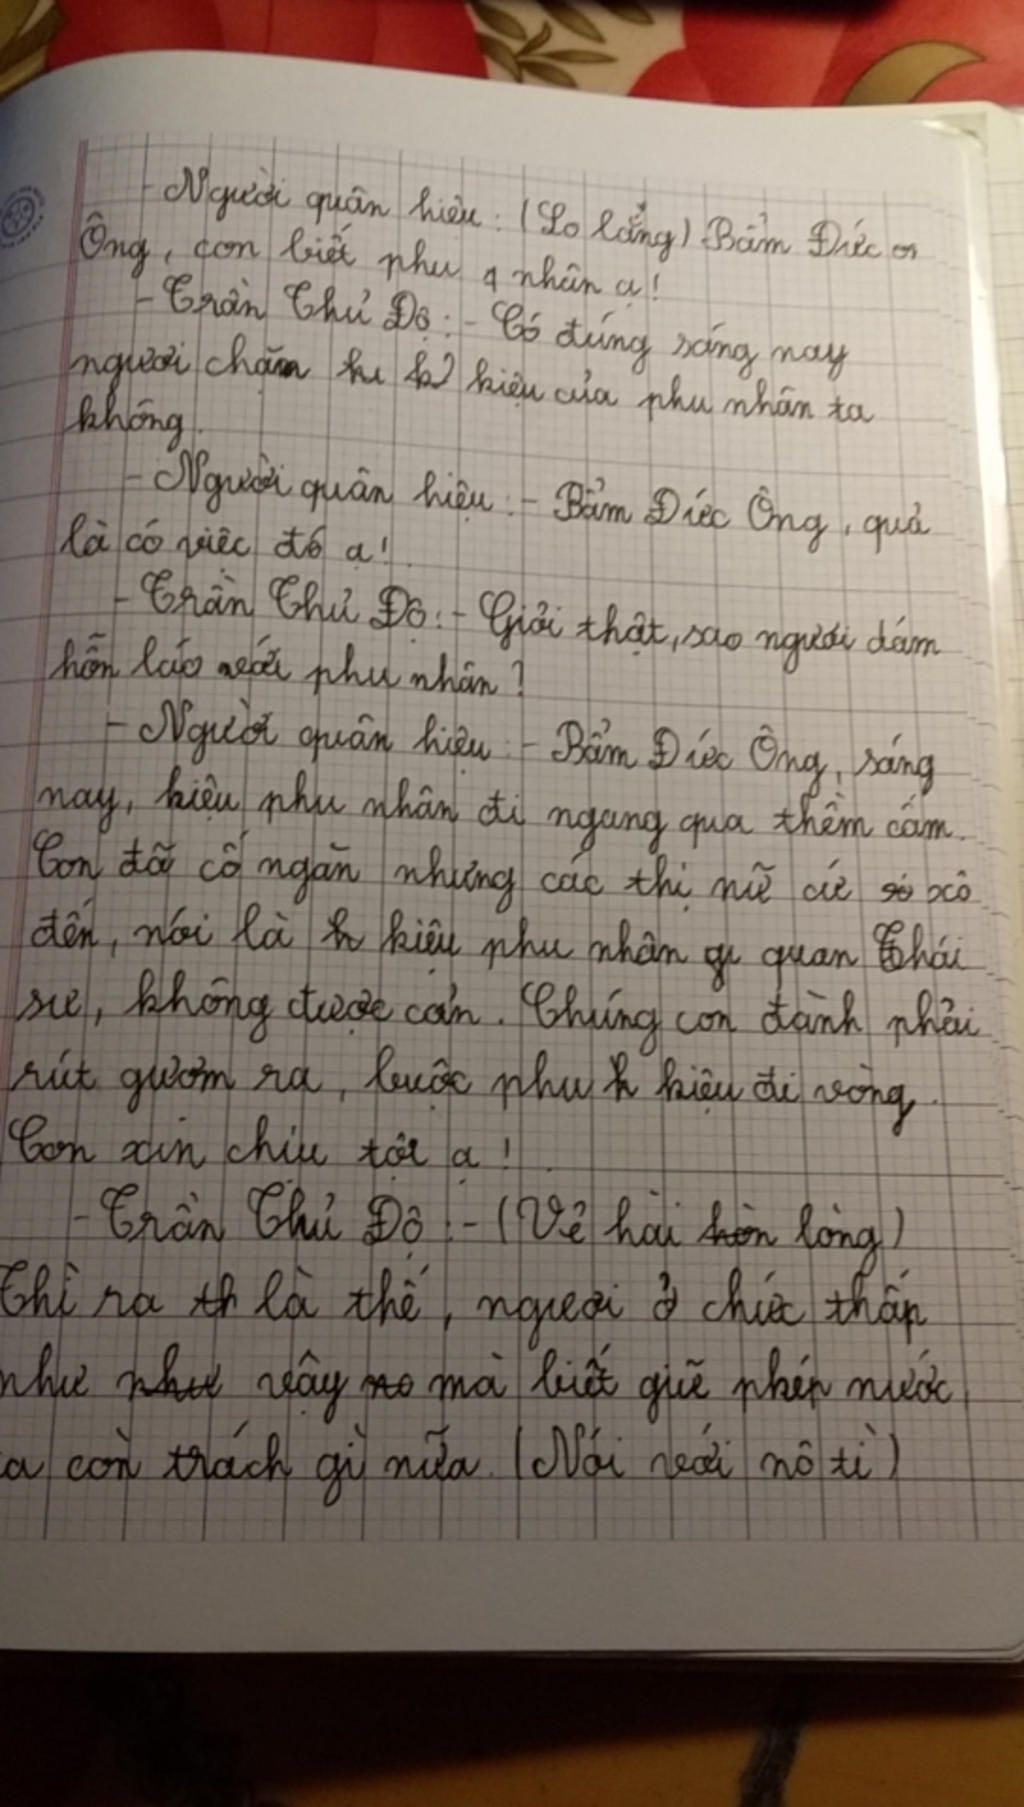 - Người quân hiệu: (Lo lắng) Bẩm Đức
Ông, con biết phu nhân ạ!
- Trần Thủ Độ: - Có đúng sáng nay
ngươi chăn kiệu của phu nhân ta
không.
- Người quân hiệu: - Bẩm Đức Ông, quả
là có việc đó ạ!
- Trần Thủ Độ: - Giỏi thật, sao ngươi dám
hỗn láo với phu nhân?
- Người quân hiệu: - Bẩm Đức Ông, sáng
nay, kiệu phu nhân đi ngang qua thềm cấm.
Con đã cố ngăn nhưng các thị nữ cứ xô
đến, nói là kiệu phu nhân quan Thái
sư, không được cản. Chúng con đành phải
rút gươm ra, buộc phu kiệu đi vòng.
Con xin chịu tội ạ!
- Trần Thủ Độ: - (Vẻ hài lòng)
Thì ra là thế, ngươi ở chức thấp
như vậy mà biết giữ phép nước,
a còn trách gì nữa. (Nói với nô tì)